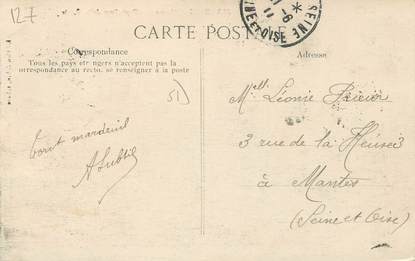 127
CARTE POSTALE
SEINE ET OISE
Correspondance
Tous les pays étrangers n'acceptent pas la
correspondance au recto, se renseigner à la poste
Adresse
51
Mlle Léonie
3 rue de la Heuse
à Mantes
(Seine et Oise)